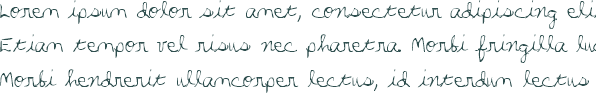 Lorem ipsum dolor sit amet, consectetur adipiscing eli
Etiam tempor vel risus nec pharetra. Morbi fringilla lu
Morbi hendrerit ullamcorper lectus, id interdum lectus